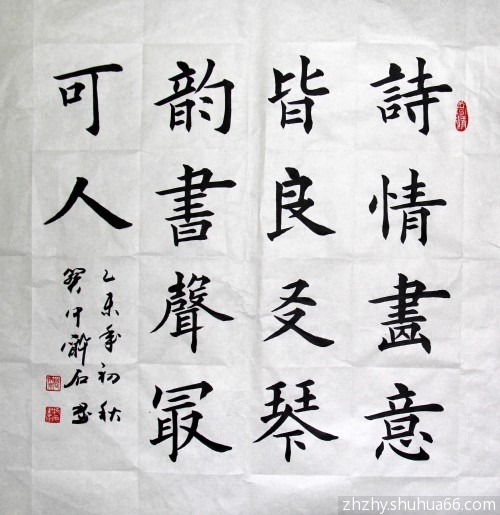 詩情畫意
皆良友琴
韵書聲最
可人
乙未年初秋
関中醉石书
zhzhy.shuhua66.com